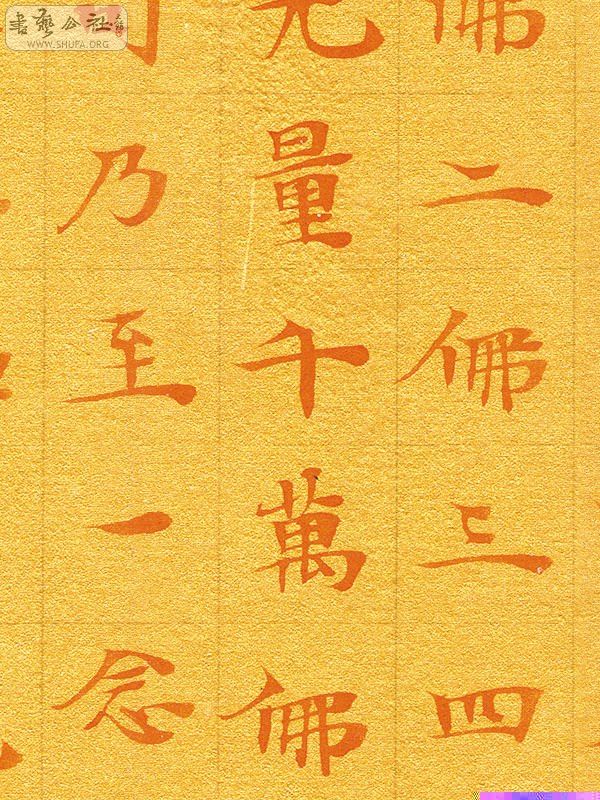 書藝公社
WWW.SHUFA.ORG
佛二佛三四
无量千萬佛
乃至一念